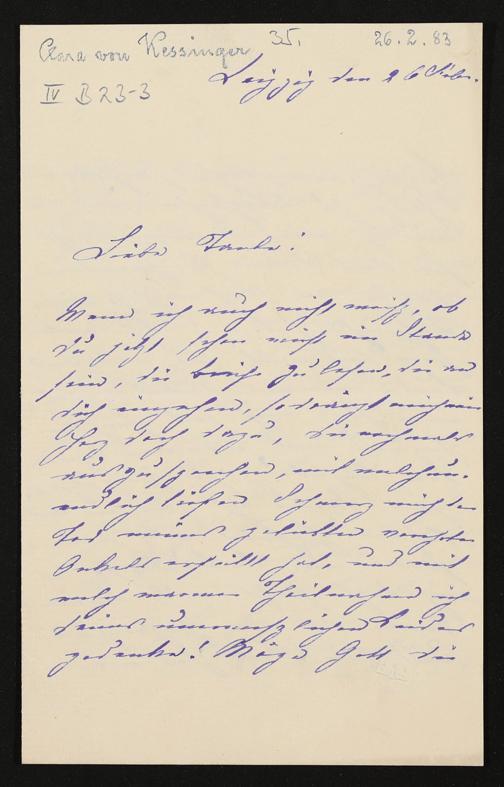 Clara von Kessinger 35. 26.2.83
IV B 23-3
Leipzig den 26 Febr.
Liebe Tante!
Wenn ich auch nicht weiß, ob
du jetzt schon wirst im Stande
sein, die Briefe zu lesen, die an
dich eingehen, so drängt mich mein
Herz doch dazu, dir nochmals
auszusprechen, mit welch un-
endlich tiefen Schmerz mich der
Tod meines geliebten verehrten
Onkels erfüllt hat, und mit
welch warmer Theilnahme ich
deines unermeßlichen Leides
gedenke! Möge Gott dir